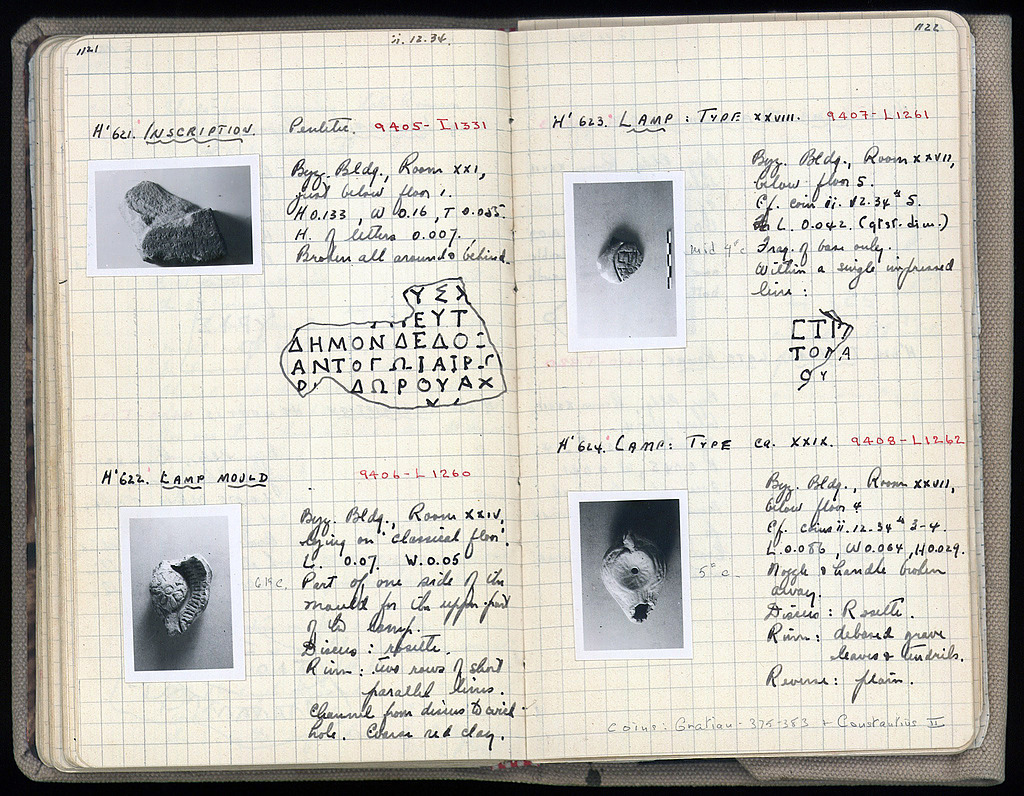 1121
ii.12.34.
H'621. INSCRIPTION. Pentelic. 9405-I1331
Byz. Bldg., Room XXI,
just below floor 1.
H 0.133, W 0.16, T 0.085.
H. of letters 0.007.
Broken all around & behind.
ΥΣΧ
ΕΥΤ
ΔΗΜΟΝΔΕΔΟΣ
ΑΝΤΟΓΩΙΑΙΡ
ΔΩΡΟΥΑΧ
H'622. LAMP MOULD 9406-L1260
Byz. Bldg., Room XXIV,
lying on 'classical floor'.
L. 0.07. W. 0.05
Part of one side of the
mould for the upper part
of the lamp.
Discus: rosette.
Rim: two rows of short
parallel lines.
Channel from discus to wick-
hole. Coarse red clay.
1122
H'623. LAMP: TYPE XXVIII. 9407-L1261
Byz. Bldg., Room XXVII,
below floor 5.
Cf. coin ii.12.34 # 5.
L. 0.042. (gr'st. dim.)
mid 4° c
Frag. of base only.
Within a single impressed
line:
ΤΟΜΑ
ΟΥ
H'624. LAMP: TYPE ca. XXIX. 9408-L1262
Byz. Bldg., Room XXVII,
below floor 4
Cf. coins ii.12.34 # 3-4.
L. 0.086, W 0.064, H 0.029.
5° c.
Nozzle & handle broken
away.
Discus: Rosette.
Rim: debased grape
leaves & tendrils.
Reverse: plain.
coins: Gratian - 375-383 + Constantius II